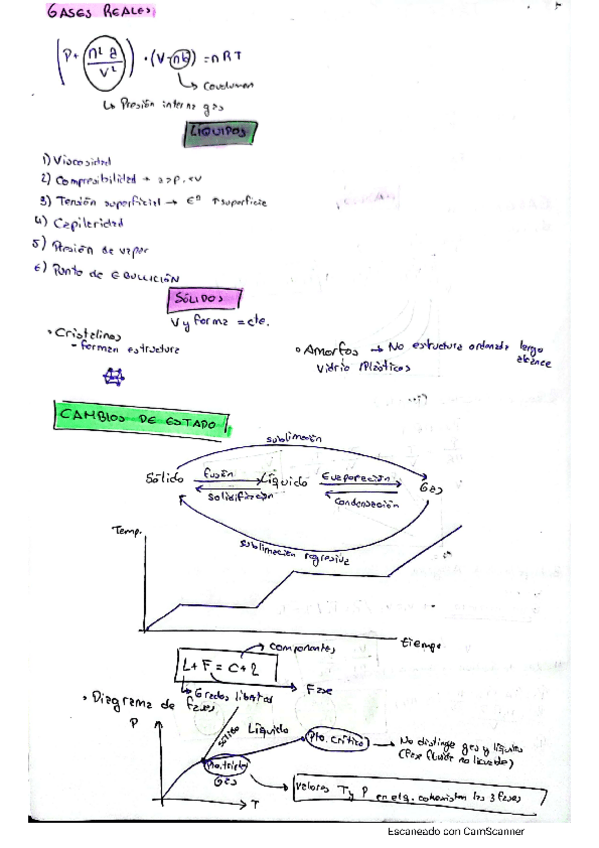 GASES REALES
(P+ n² a / V²) · (V-nb) = nRT
↳ Covolumen
↳ Presión interna gas
LÍQUIDOS
1) Viscosidad
2) Compresibilidad →
3) Tensión superficial → ↑superficie
4) Capilaridad
5) Presión de vapor
6) Punto de EBULLICIÓN
SÓLIDOS
V y forma = cte.
• Cristalinos
- forman estructura
• Amorfos → No estructura ordenada largo alcance
Vidrio, Plásticos
CAMBIOS DE ESTADO
sublimación
Sólido fusión Líquido Evaporación Gas
solidificación condensación
sublimación regresiva
Temp.
tiempo
→ componentes
L + F = C + 2
↳ Grados libertad → Fase
• Diagrama de fases
P
sólido Líquido Pto. crítico → No distingue gas y líquido
Pto. triple
Gas
valores T y P en el q. coexisten las 3 fases
T
Escaneado con CamScanner